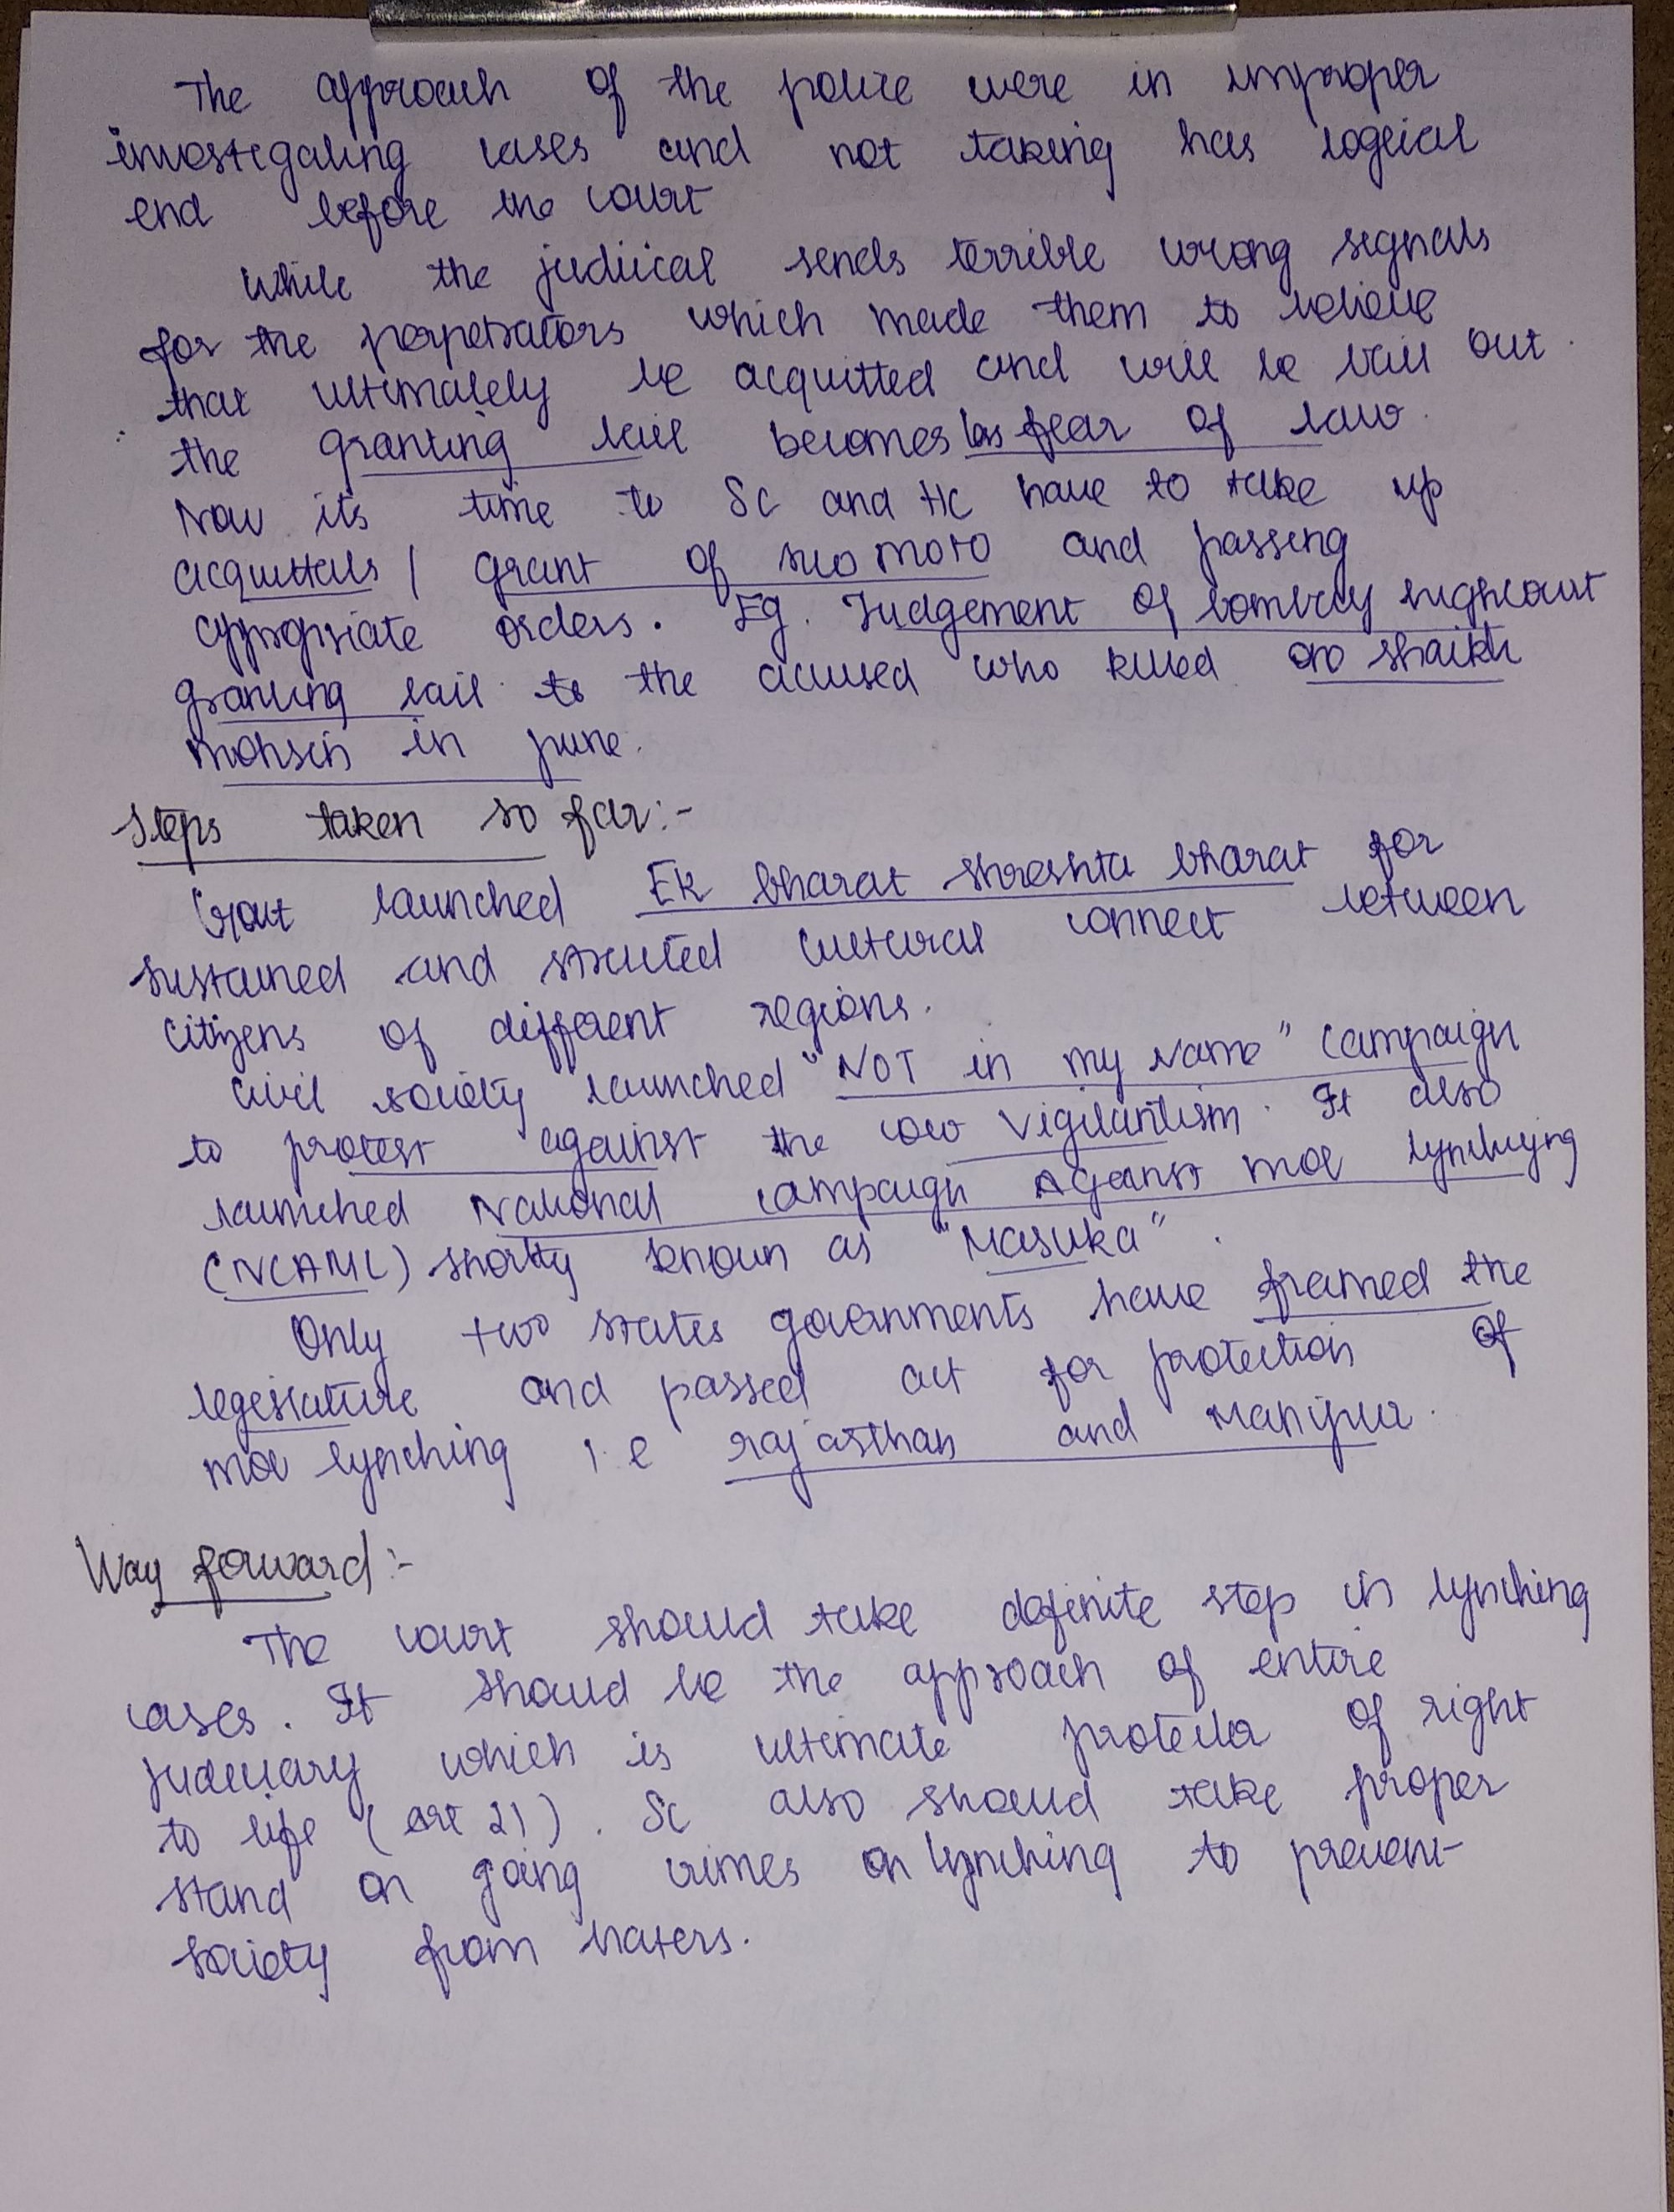 The approach of the police were in improper
investegating cases and not taking has logical
end before the court
While the judiical sends terrible wrong signals
for the perpetrators which made them to believe
that ultimately be acquitted and will be bail out.
the granting bail becomes las fear of law.
Now its time to SC and HC have to take up
acquittals / grant of suo moto and passing
appropriate orders. Eg. Judgement of bombay highcourt
granting bail to the accused who killed on shaikh
mohsin in june.
Steps taken so far:-
Govt launched Ek bharat shreshta bharat for
sustained and structed cultural connect between
citizens of different regions.
Civil society launched "NOT in my Name" campaign
to protest against the cow vigilantism. It also
launched National campaign Against mob lynchying
(NCAML) shortly known as "Masuka".
Only two states governments have framed the
legislature and passed act for protection of
mob lynching i.e rajasthan and Manipur.
Way forward:-
The court should take definite step in lynching
cases. It should be the approach of entire
judiciary which is ultimate protector of right
to life (art 21). SC also should take proper
stand on going crimes on lynching to prevent
society from haters.